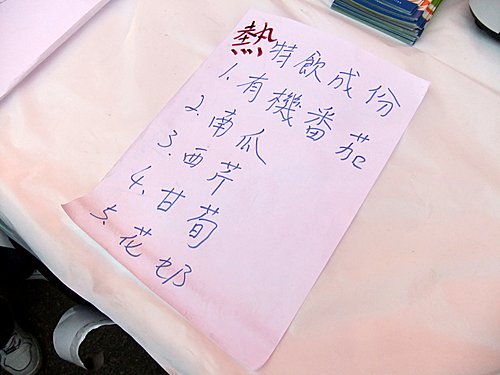 熱特飲成份
1. 有機番茄
2. 南瓜
3. 西芹
4. 甘荀
5. 花邨